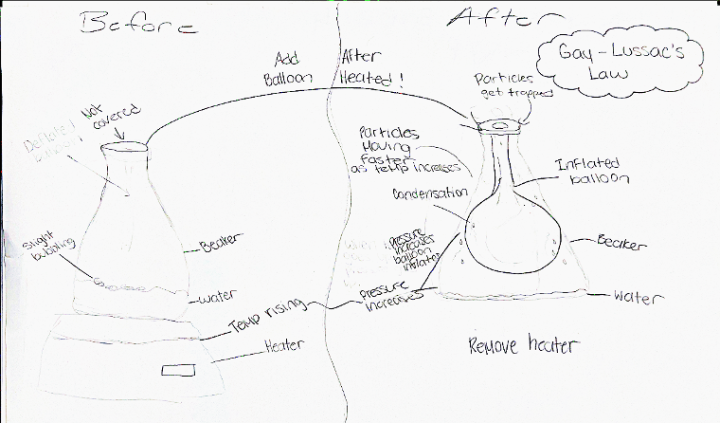 Before
After
Gay-Lussac's
Law
Add
Balloon
After
Heated!
Not
covered
Deflated
Slight
bubbling
Beaker
water
Temp rising
Heater
Particles
get trapped
Particles
Moving
faster
as temp increases
Condensation
Inflated
balloon
pressure
increases
balloon
inflates
Pressure
increases
Beaker
Water
Remove heater